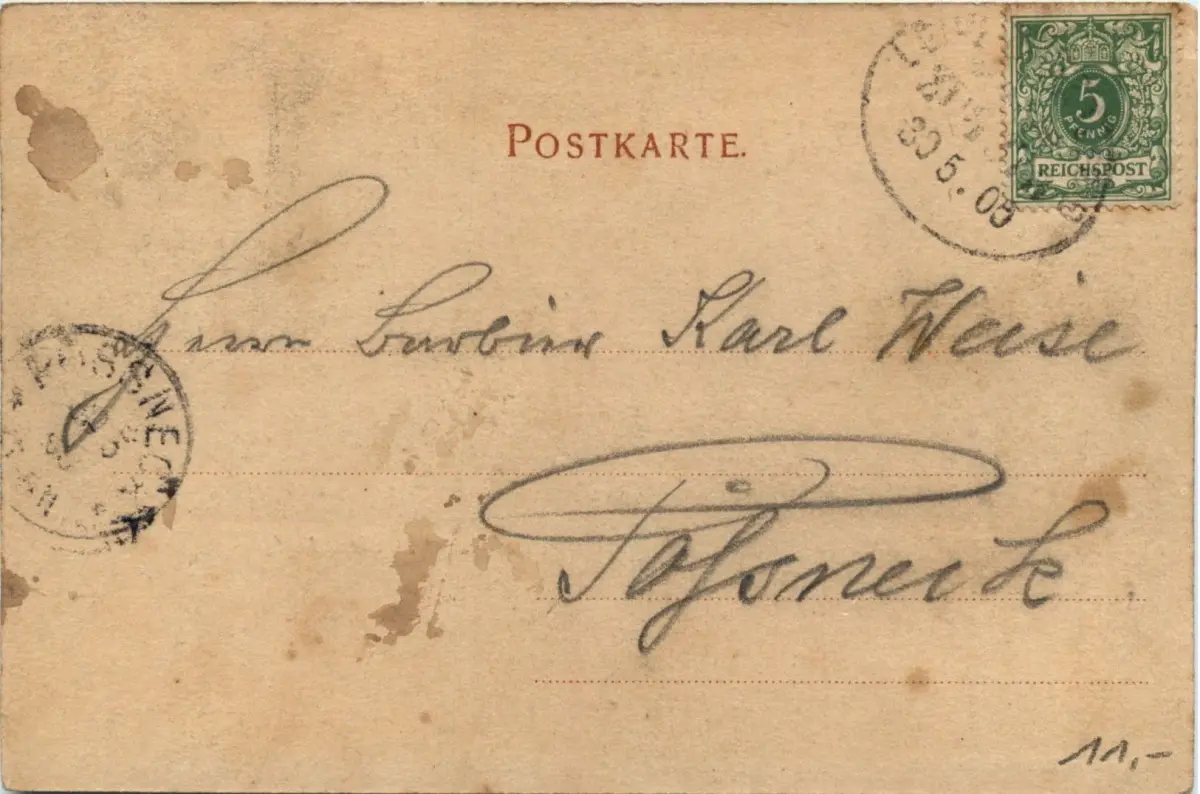 POSTKARTE.
5
PFENNIG
REICHSPOST
30 5. 0
Herrn Barbier Karl Weise
PÖSSNECK
Pößneck
11,-